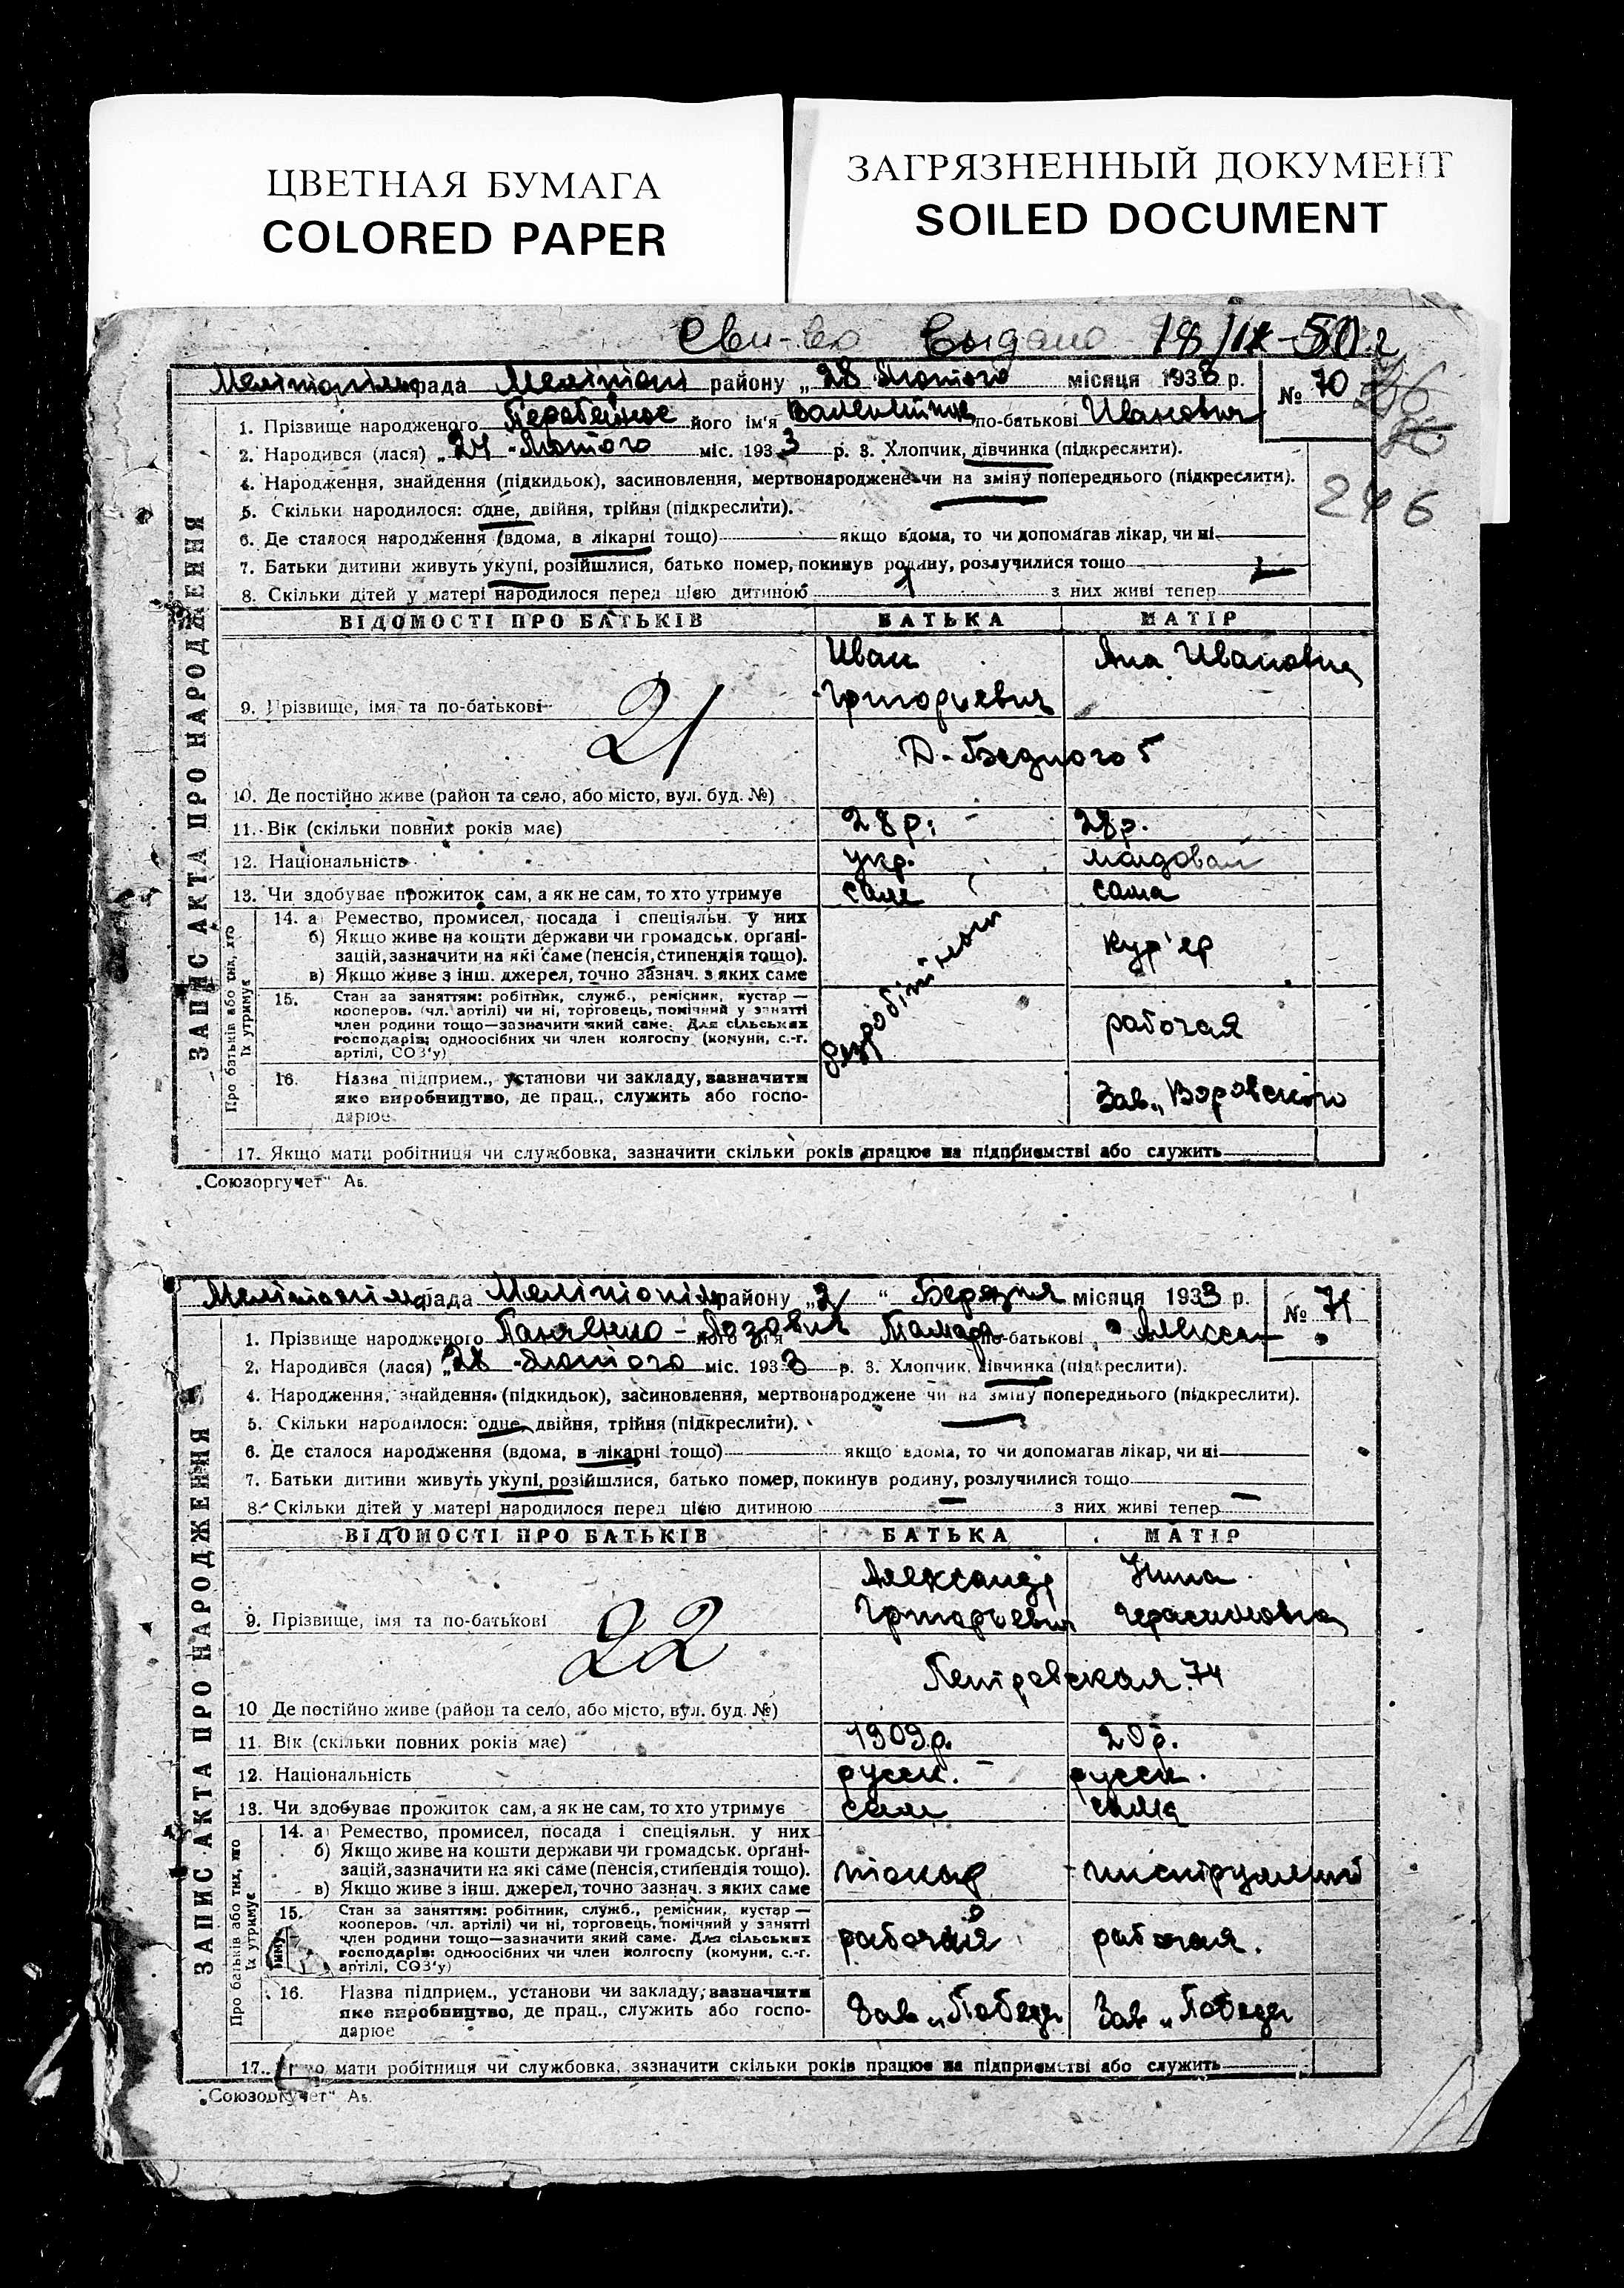 ЦВЕТНАЯ БУМАГА
COLORED PAPER
ЗАГРЯЗНЕННЫЙ ДОКУМЕНТ
SOILED DOCUMENT
выдано 18/IX-50 г
рада району „28 Лютого місяця 1933 р. № 70
246
1. Прізвище народженого його ім'я по-батькові
2. Народився (лася) „24 Лютого міс. 1933 р. 3. Хлопчик, дівчинка (підкреслити).
4. Народження, знайдення (підкидьок), засиновлення, мертвонароджене чи на зміну попереднього (підкреслити).
5. Скільки народилося: одне, двійня, трійня (підкреслити).
6. Де сталося народження (вдома, в лікарні тощо) якщо вдома, то чи допомагав лікар, чи ні
7. Батьки дитини живуть укупі, розійшлися, батько помер, покинув родину, розлучилися тощо
8. Скільки дітей у матері народилося перед цією дитиною 1 з них живі тепер 1
ЗАПИС АКТА ПРО НАРОДЖЕННЯ
ВІДОМОСТІ ПРО БАТЬКІВ БАТЬКА МАТІР
Иван
Григорьевич
Ана Ивановна
9. Прізвище, імя та по-батькові
21
Д-Бедного 5
10. Де постійно живе (район та село, або місто, вул. буд. №)
11. Вік (скільки повних років має) 28 р. 28 р.
12. Національність укр.
13. Чи здобуває прожиток сам, а як не сам, то хто утримує сам сама
Про батьків або тих, хто їх утримує
14. а) Ремество, промисел, посада і спеціяльн. у них
б) Якщо живе на кошти держави чи громадськ. органі-
зацій, зазначити на які саме (пенсія, стипендія тощо).
в) Якщо живе з інш. джерел, точно зазнач. з яких саме
безробітний
кур'ер
15. Стан за заняттям: робітник, служб., ремісник, кустар —
кооперов. (чл. артілі) чи ні, торговець, помічний у занятті
член родини тощо—зазначити який саме. Для сільських
господарів: одноосібних чи член колгоспу (комуни, с.-г.
артілі, СОЗ'у)
рабочая
16. Назва підприєм., установи чи закладу, зазначити
яке виробництво, де прац., служить або госпо-
дарює
Зав. „Воровского
17. Якщо мати робітниця чи службовка, зазначити скільки років працює на підприємстві або служить
„Союзоргучет" Аз.
рада району „2 " Березня місяця 1933 р. № 71
1. Прізвище народженого його ім'я Тамара по-батькові Алексан
2. Народився (лася) „28 Лютого міс. 1933 р. 3. Хлопчик, дівчинка (підкреслити).
4. Народження, знайдення (підкидьок), засиновлення, мертвонароджене чи на зміну попереднього (підкреслити).
5. Скільки народилося: одне, двійня, трійня (підкреслити).
6. Де сталося народження (вдома, в лікарні тощо) якщо вдома, то чи допомагав лікар, чи ні
7. Батьки дитини живуть укупі, розійшлися, батько помер, покинув родину, розлучилися тощо
8. Скільки дітей у матері народилося перед цією дитиною — з них живі тепер —
ЗАПИС АКТА ПРО НАРОДЖЕННЯ
ВІДОМОСТІ ПРО БАТЬКІВ БАТЬКА МАТІР
Александр
Григорьевич
Нина
Герасимовна
9. Прізвище, імя та по-батькові
22
Петровская 74
10 Де постійно живе (район та село, або місто, вул. буд. №)
11. Вік (скільки повних років має) 1909 р. 20 р.
12. Національність русск. русск.
13. Чи здобуває прожиток сам, а як не сам, то хто утримує сам сама
Про батьків або тих, що їх утримує
14. а) Ремество, промисел, посада і спеціяльн. у них
б) Якщо живе на кошти держави чи громадськ. органі-
зацій, зазначити на які саме (пенсія, стипендія тощо).
в) Якщо живе з інш. джерел, точно зазнач. з яких саме
токар
15. Стан за заняттям: робітник, служб., ремісник, кустар —
кооперов. (чл. артілі) чи ні, торговець, помічний у занятті
член родини тощо—зазначити який саме. Для сільських
господарів: одноосібних чи член колгоспу (комуни, с.-г.
артілі, СОЗ'у)
рабочий рабочая.
16. Назва підприєм., установи чи закладу, зазначити
яке виробництво, де прац., служить або госпо-
дарює
Зав „Победа Зав „Победа
17. мати робітниця чи службовка, зазначити скільки років працює на підприємстві або служить
„Союзоргучет" Аз.